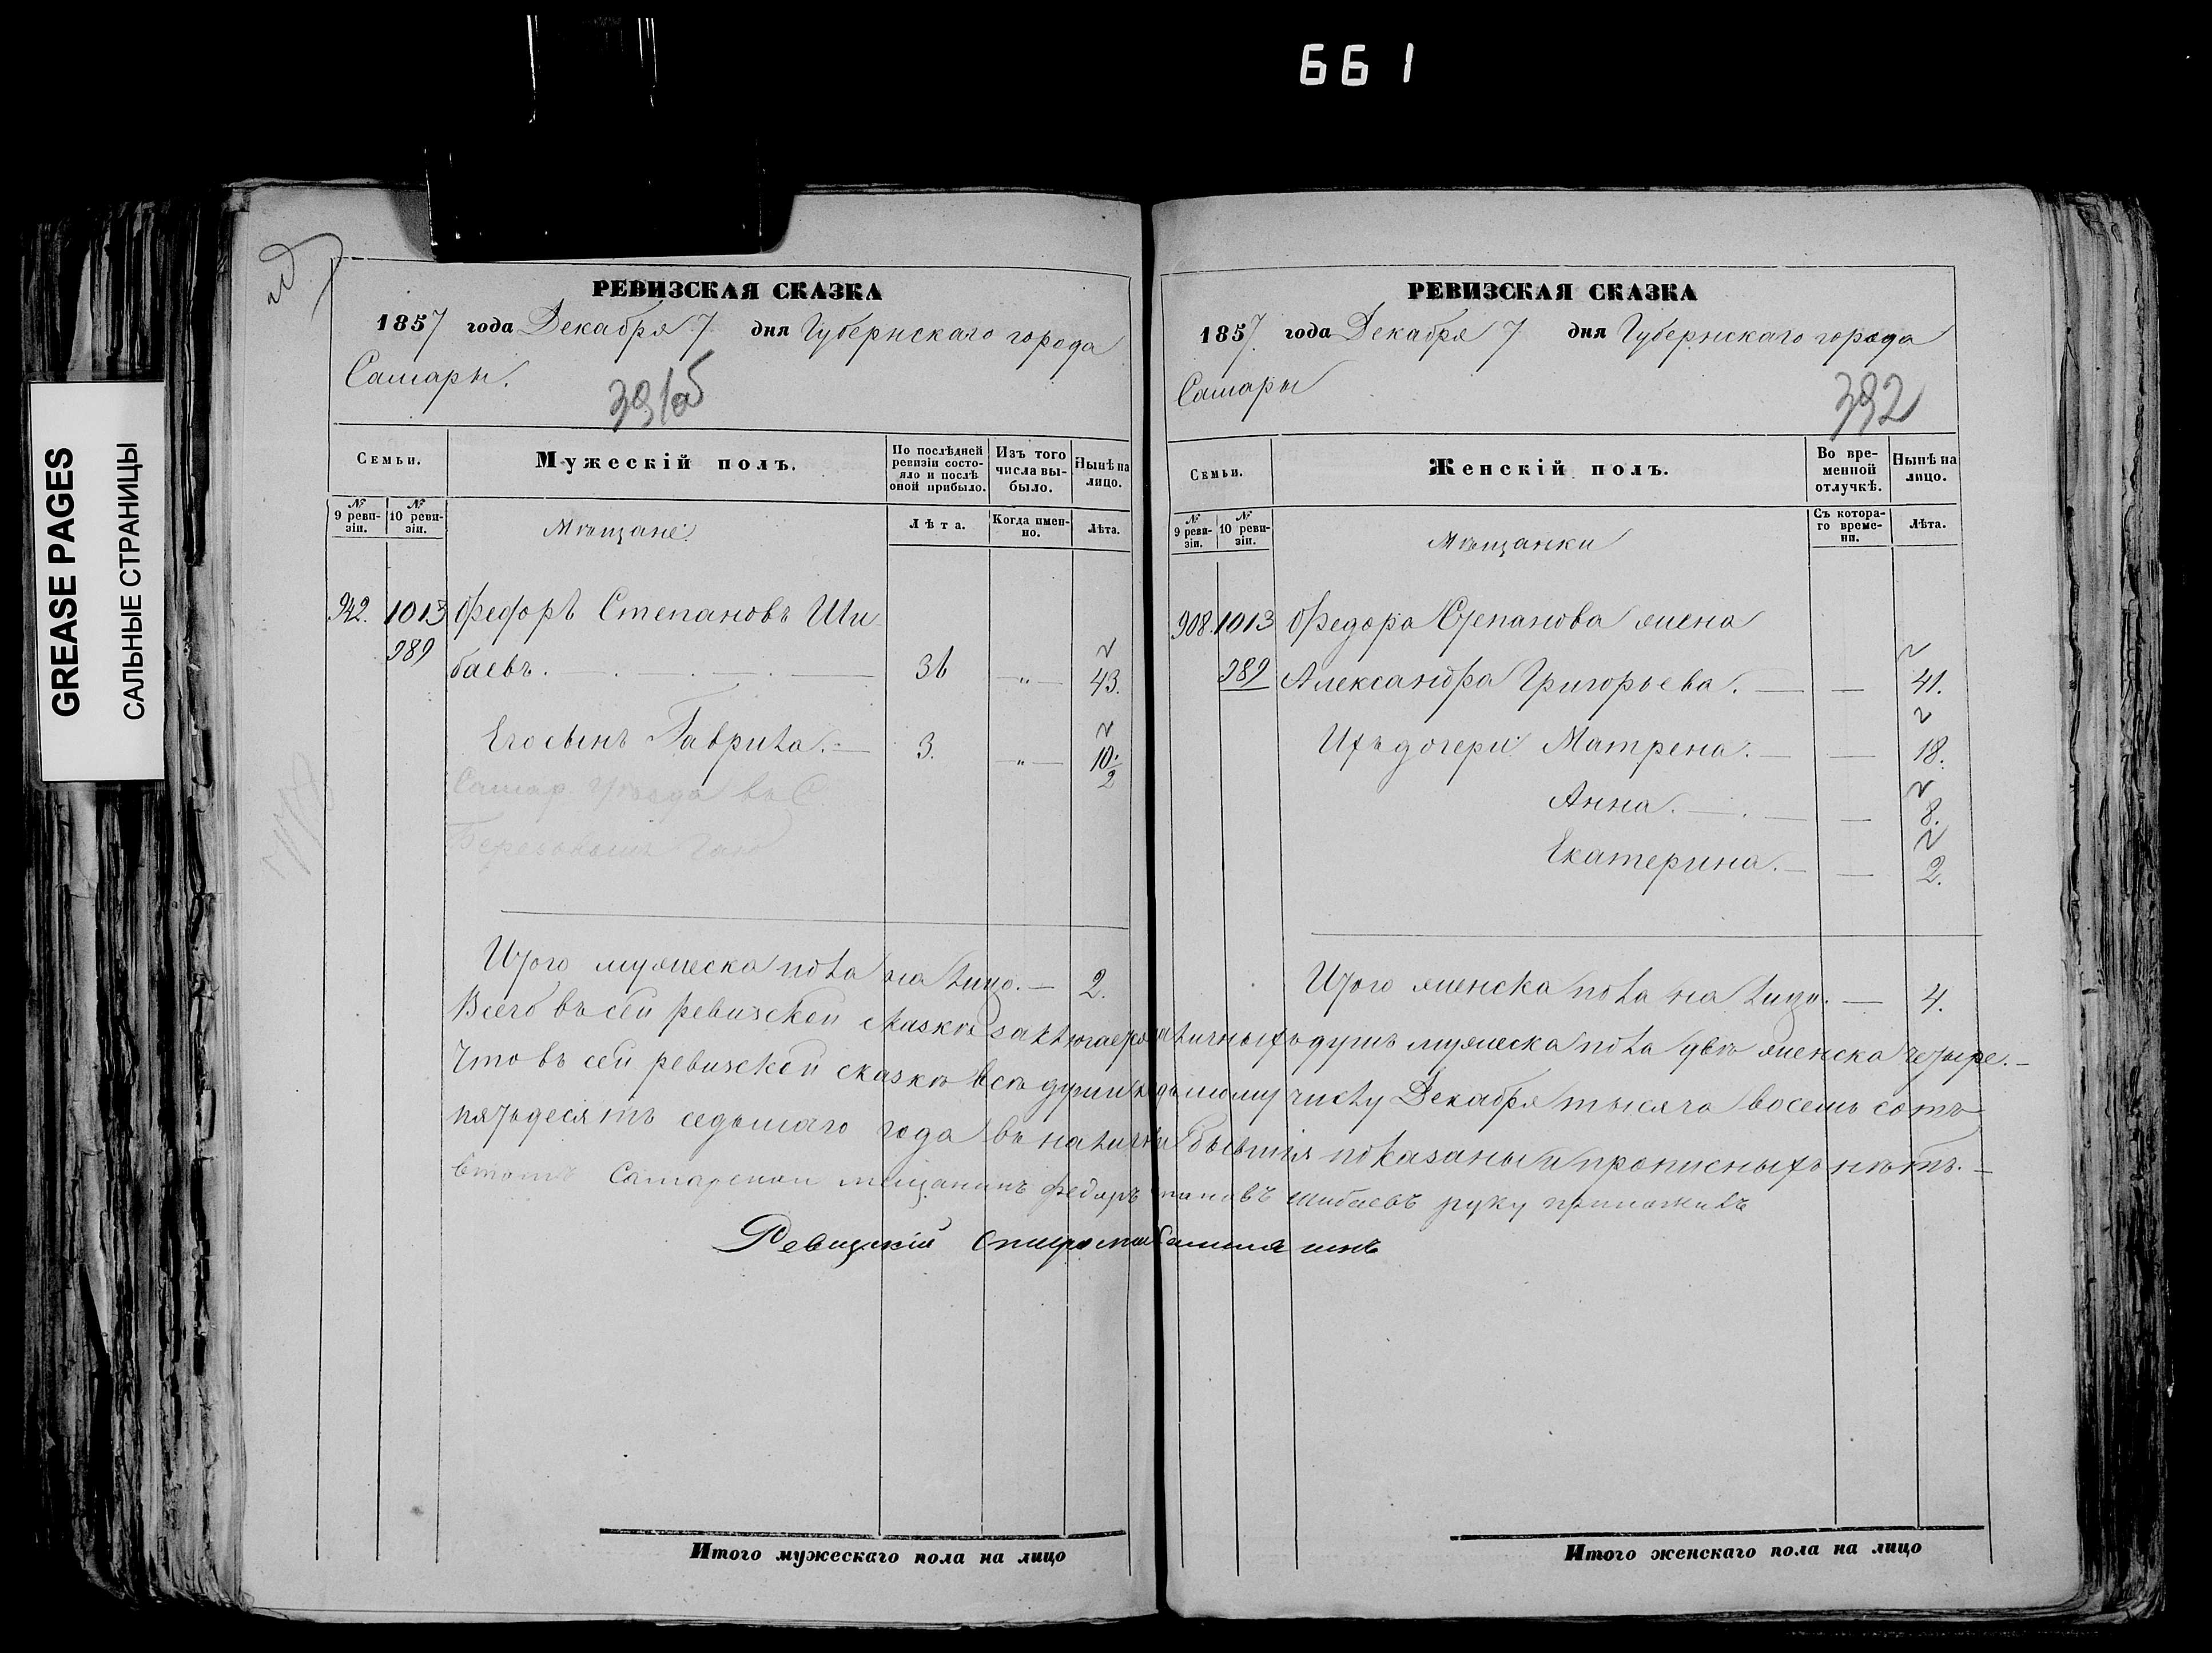 661
GREASE PAGES
САЛЬНЫЕ СТРАНИЦЫ
РЕВИЗСКАЯ СКАЗКА
1857 года Декабря 7 дня Губернскаго города
Самары.
391об
Семьи.
Мужескій полъ.
По послѣдней ревизіи состояло и послѣ оной прибыло.
Изъ того числа выбыло.
Нынѣ на лицо.
№ 9 ревизіи.
№ 10 ревизіи.
Мѣщане.
Лѣта.
Когда именно.
Лѣта.
942. 1013 Федоръ Степановъ Ши
989 баевъ. 36 „ 43.
Его сынъ Гаврила. 3. „ 10 1/2
Самар. Уѣзда въ С
Березовомъ Гаю
Итого мужеска пола на лицо. 2.
РЕВИЗСКАЯ СКАЗКА
1857 года Декабря 7 дня Губернскаго города
Самары
392
Семьи.
Женскій полъ.
Во временной отлучкѣ.
Нынѣ на лицо.
№ 9 ревизіи.
№ 10 ревизіи.
Мѣщанки
Съ котораго времени.
Лѣта.
908. 1013 Федора Степанова жена
989 Александра Григорьева. 41.
Ихъ дочери Матрена. 18.
Анна. 8.
Екатерина. 2.
Итого женска пола на лицо. 4.
Всего въ сей ревизской сказкѣ заключается наличныхъ душъ мужеска пола двѣ женска четыре.
Что въ сей ревизской сказкѣ всѣ души къ седьмому числу Декабря тысяча восемь сотъ
пятьдесятъ седьмаго года въ наличіи бывшія показаны и прописныхъ нѣтъ.
втомъ Самарской мещанинъ Федоръ Степановъ Шибаевъ руку приложилъ
Итого мужескаго пола на лицо
Итого женскаго пола на лицо